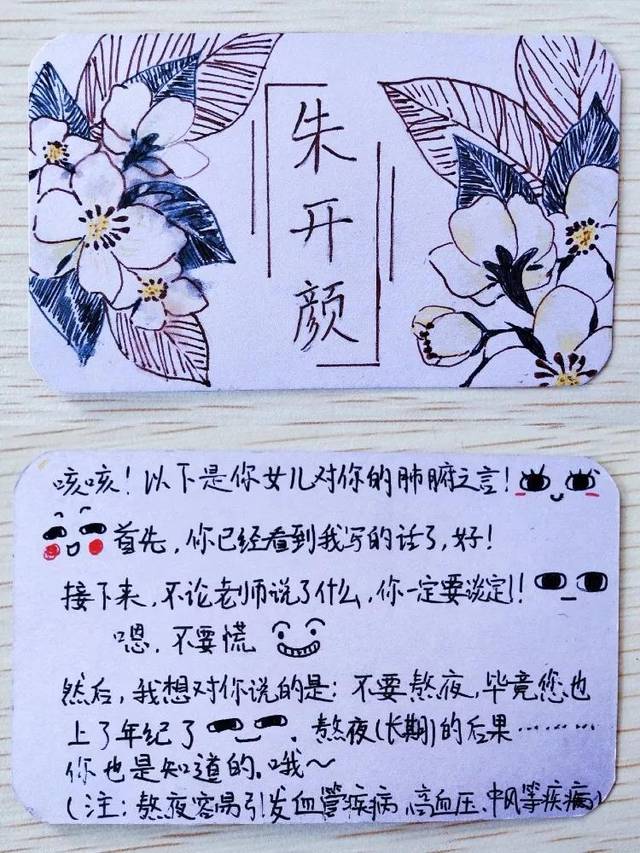 朱开颜
咳咳！以下是你女儿对你的肺腑之言！
首先，你已经看到我写的话了，好！
接下来，不论老师说了什么，你一定要淡定！！
嗯，不要慌
然后，我想对你说的是：不要熬夜，毕竟您也
上了年纪了 . 熬夜(长期)的后果………
你也是知道的。哦～
(注：熬夜容易引发血管疾病、高血压、中风等疾病)